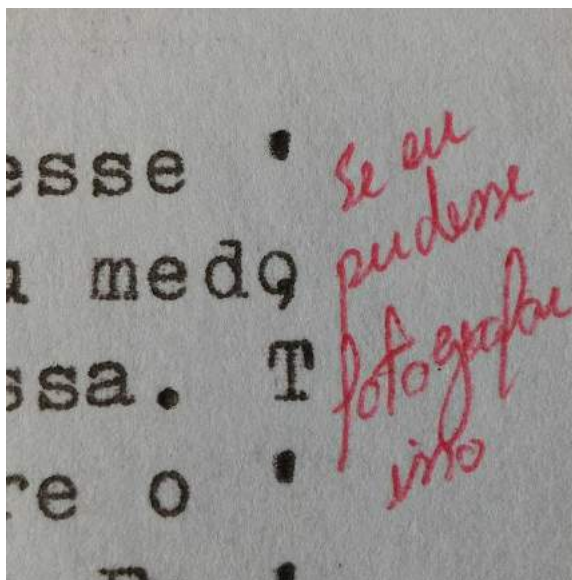 esse '
medo,
ssa. T
re o '
Se eu
pudesse
fotografar
isso